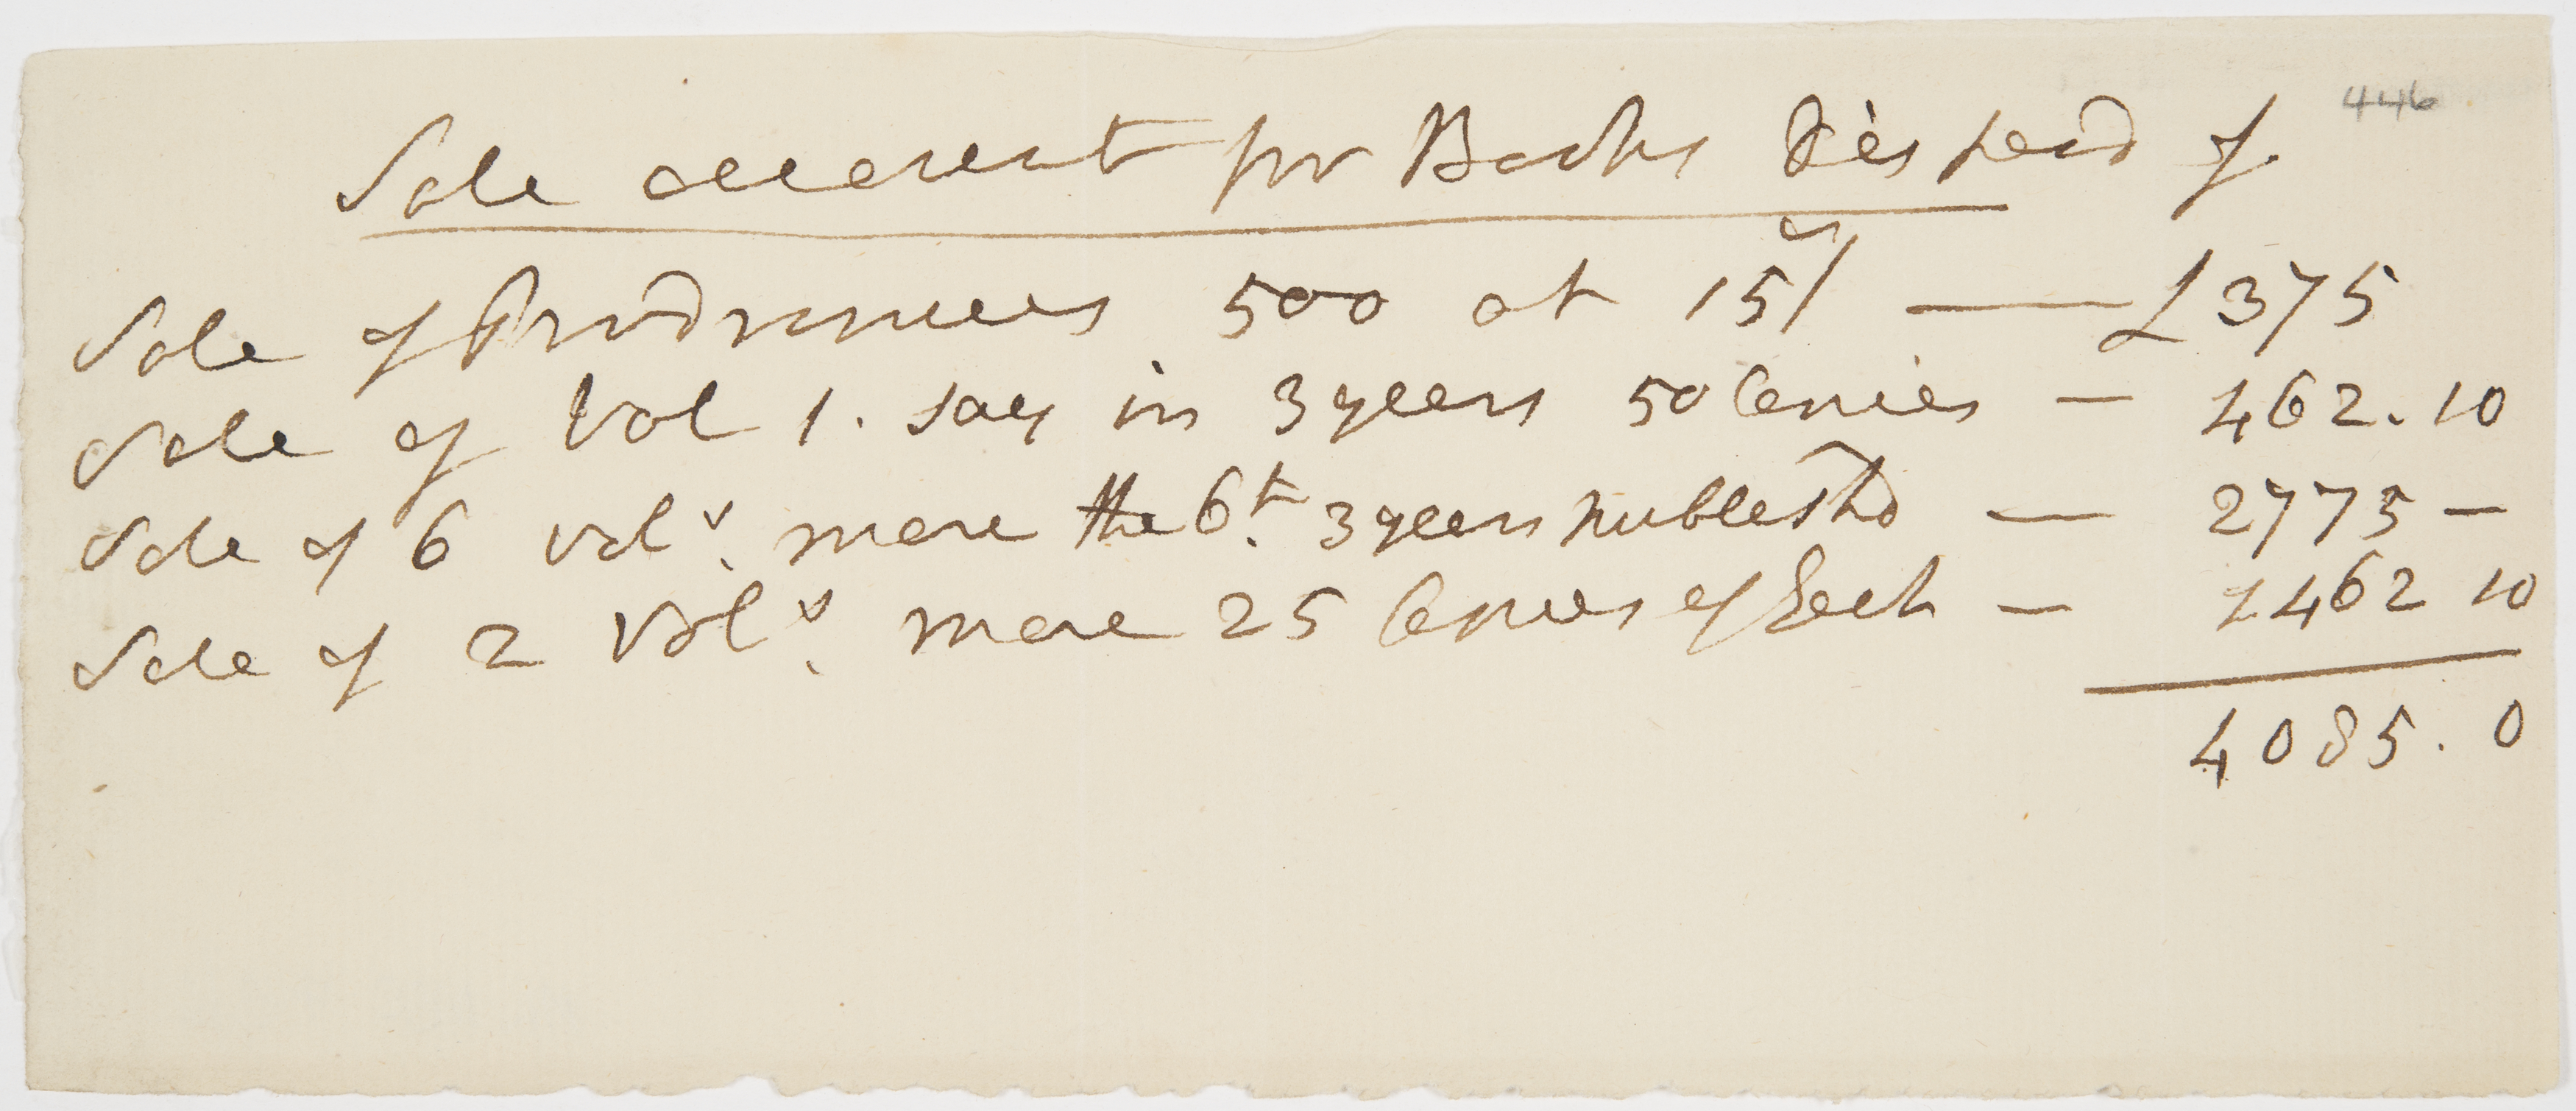 446
Sale account for Books Disposd of
Sale of Prodromus 500 at 15s/ — £375
Sale of Vol 1. say in 3 years 50 Copies — 462.10
Sale of 6 vols. more the 6t. 3 years publishd — 2775 —
Sale of 2 Vols. more 25 Copies of Each — 462 10
4085. 0